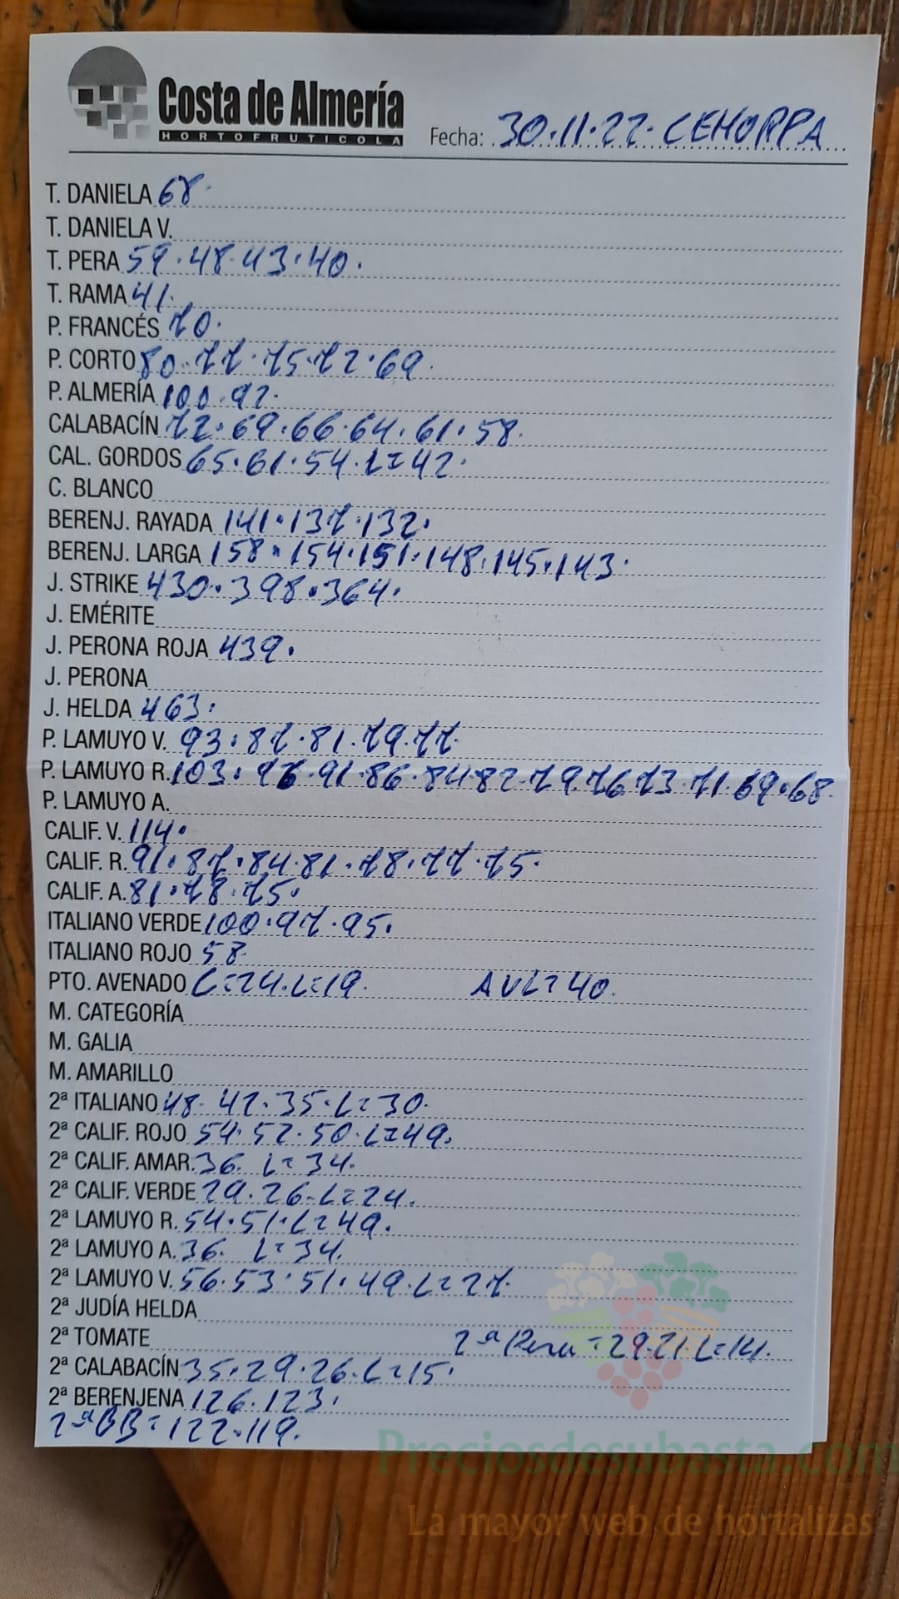 Costa de Almería
HORTOFRUTICOLA
Fecha: 30.11.22. CEHORPA
T. DANIELA 68.
T. DANIELA V.
T. PERA 59.48.43.40.
T. RAMA 41.
P. FRANCÉS 70.
P. CORTO 80.77.75.72.69.
P. ALMERÍA 100.92.
CALABACÍN 72.69.66.64.61.58.
CAL. GORDOS 65.61.54.L=42.
C. BLANCO
BERENJ. RAYADA 141.137.132.
BERENJ. LARGA 158.154.151.148.145.143.
J. STRIKE 430.398.364.
J. EMÉRITE
J. PERONA ROJA 439.
J. PERONA
J. HELDA 463.
P. LAMUYO V. 93.87.81.79.77.
P. LAMUYO R. 103. 91.86.84.82.79.76.73.71.69.68.
P. LAMUYO A.
CALIF. V. 114.
CALIF. R. 91.87.84.81.78.77.75.
CALIF. A. 81.78.75.
ITALIANO VERDE 100.97.95.
ITALIANO ROJO 58.
PTO. AVENADO L=24.L=19. AVL=40.
M. CATEGORÍA
M. GALIA
M. AMARILLO
2ª ITALIANO 48.42.35.L=30.
2ª CALIF. ROJO 54.52.50.L=49.
2ª CALIF. AMAR. 36. L=34.
2ª CALIF. VERDE 29.26.L=24.
2ª LAMUYO R. 54.51.L=49.
2ª LAMUYO A. 36. L=34.
2ª LAMUYO V. 56.53.51.49.L=27.
2ª JUDÍA HELDA
2ª TOMATE 2ª Pera=29.21.L=14.
2ª CALABACÍN 35.29.26.L=15.
2ª BERENJENA 126.123.
2ªBB=122.119.
Preciosdesubasta.com
La mayor web de hortalizas